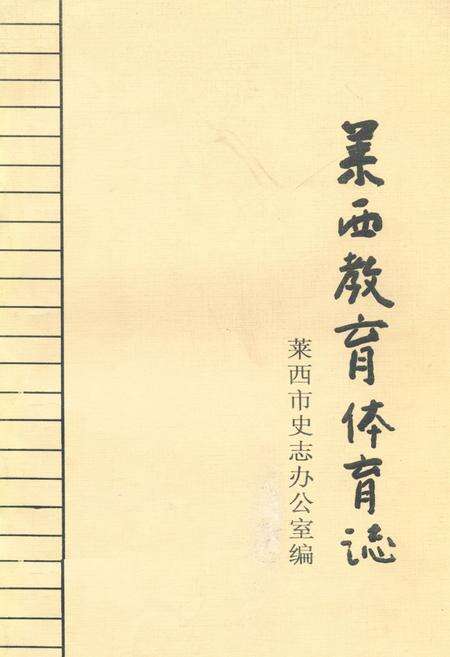 莱西教育体育誌
莱西市史志办公室编